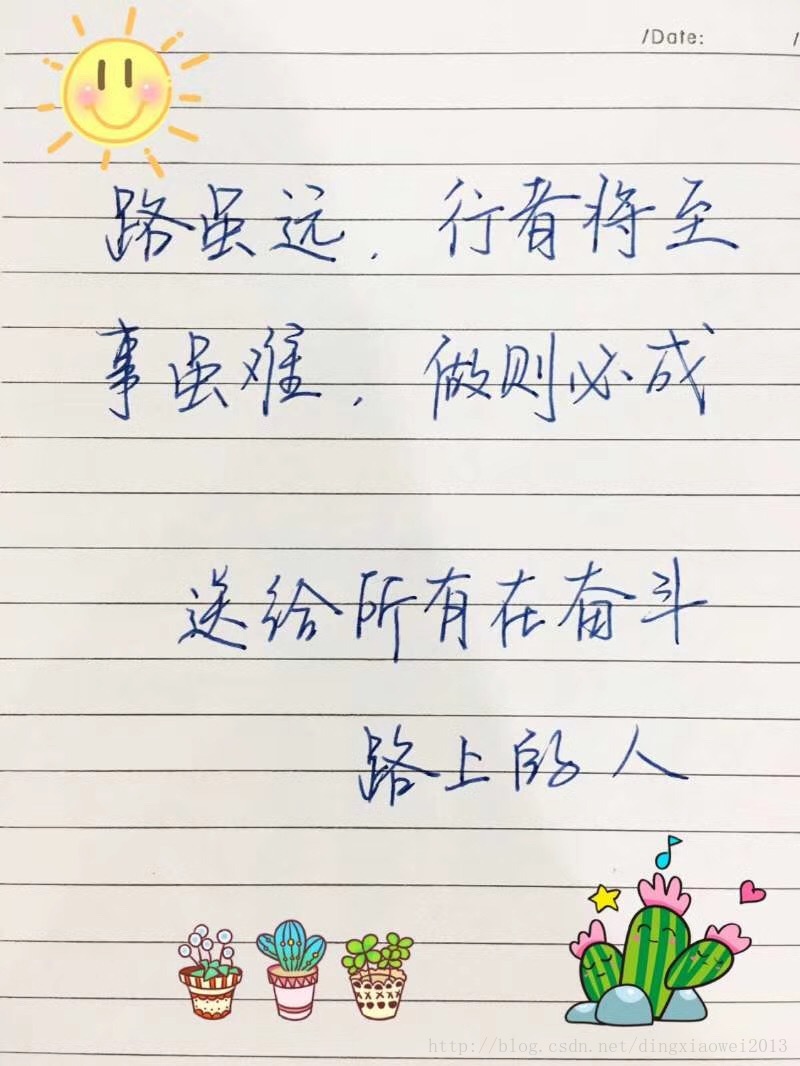 /Date: /
路虽远，行者将至
事虽难，做则必成
送给所有在奋斗
路上的人
http://blog.csdn.net/dingxiaowei2013